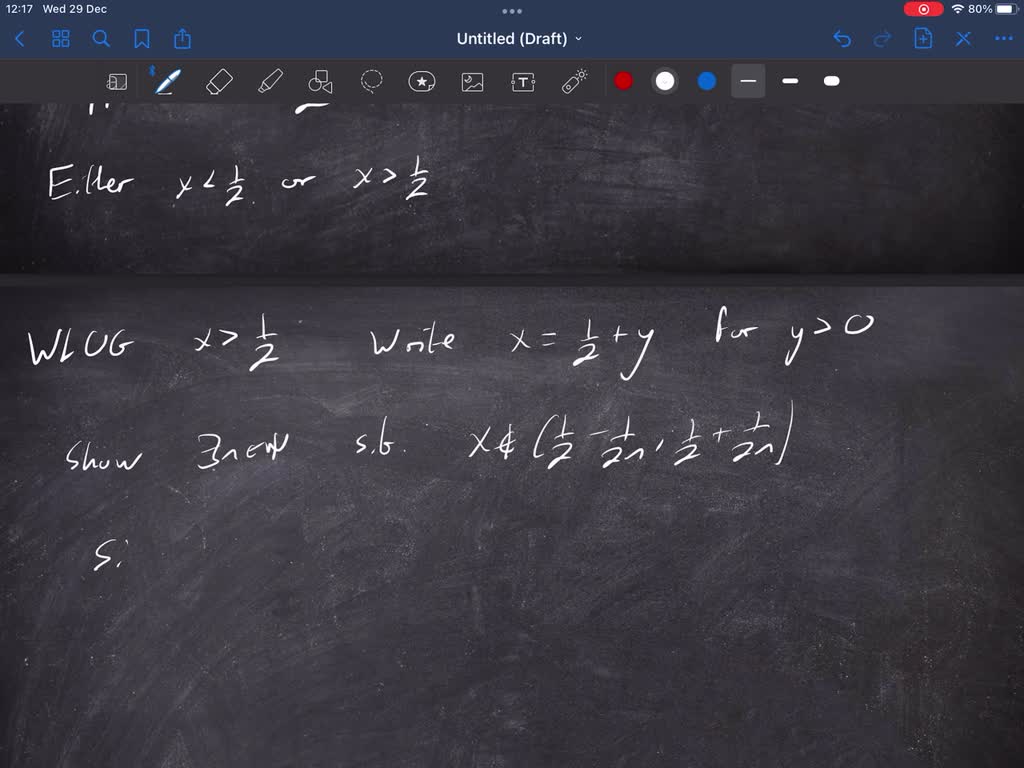 12:17 Wed 29 Dec 80%
Untitled (Draft)
Either x < 1/2 or x > 1/2
WLOG x > 1/2 Write x = 1/2 + y for y > 0
Show ∃n∈ℕ s.t. x ∉ (1/2 - 1/2n, 1/2 + 1/2n)
Si